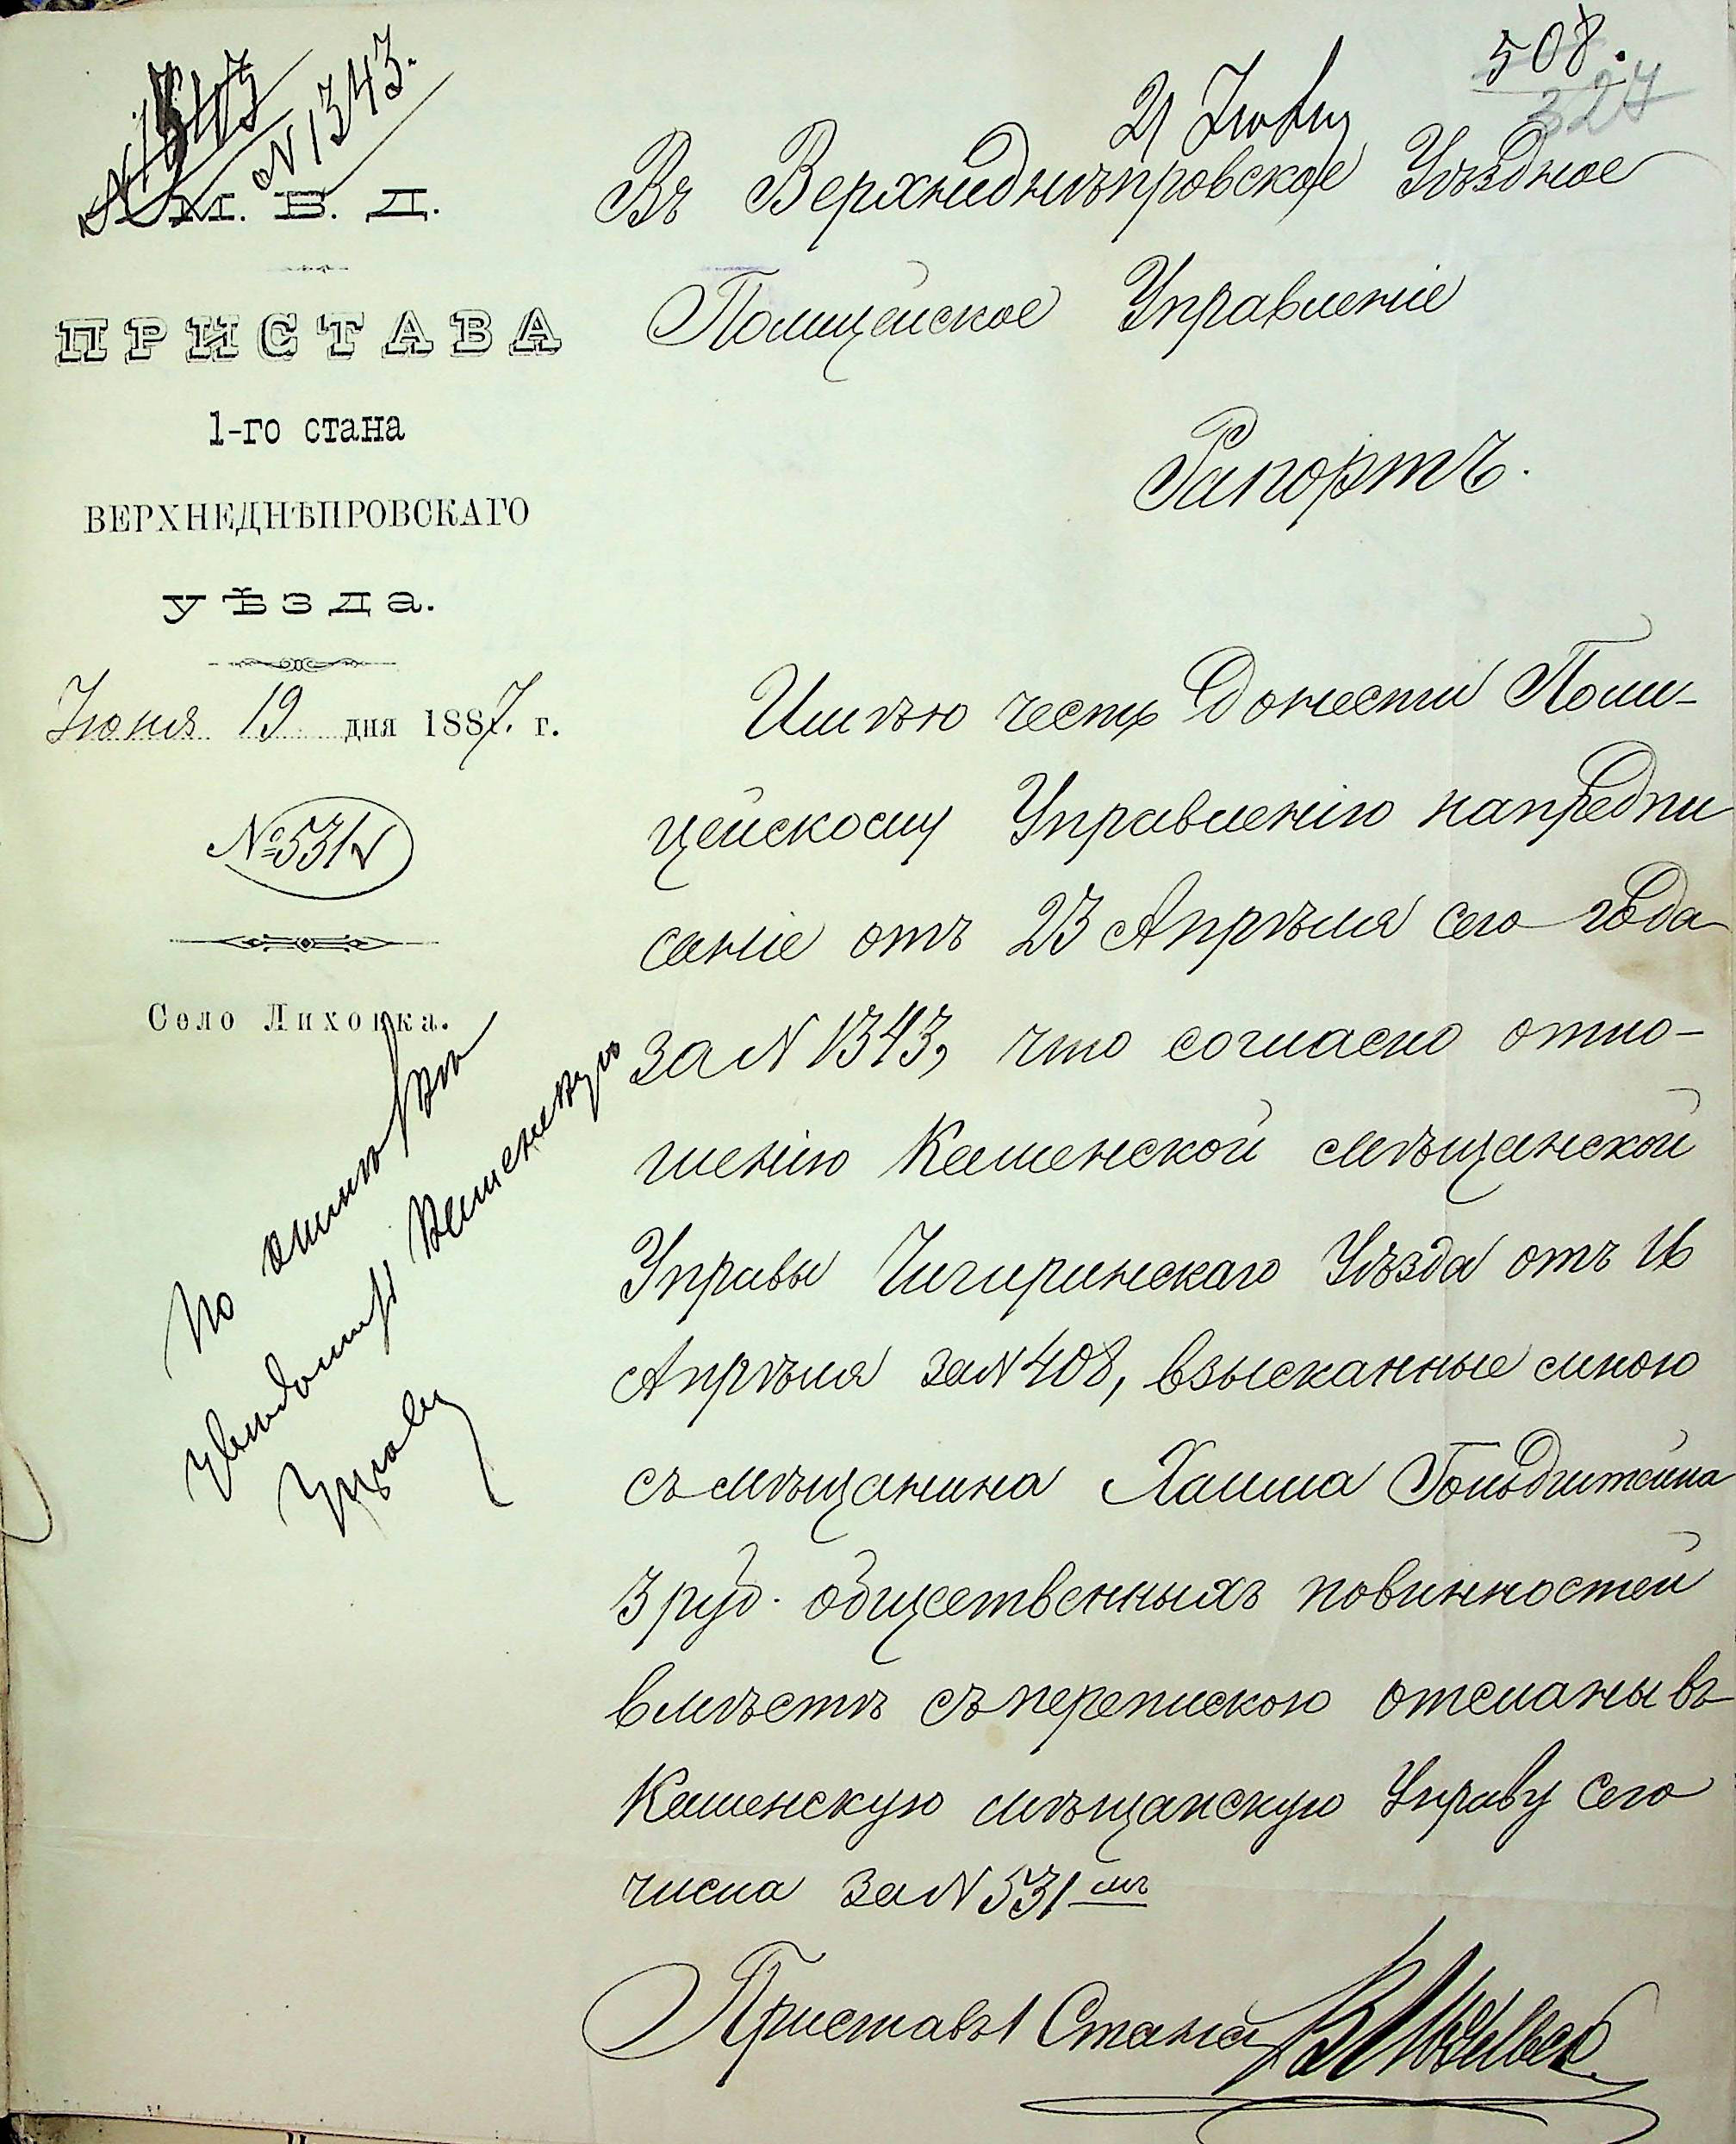 № 1343
№ 1343.
508.
327
21 Іюня
М. В. Д.
ПРИСТАВА
1-го стана
ВЕРХНЕДНѢПРОВСКАГО
уѣзда.
Іюня 19 дня 1887. г.
№ 531
Село Лиховка.
Въ Верхнеднѣпровское Уѣздное
Полицейское Управленіе
Рапортъ.
Имѣю честь донести Поли-
цейскому Управленію напредпи
саніе отъ 23 Апрѣля сего года
за N 1343, что согласно отно-
шенію Каменской мѣщанской
Управы Чигиринскаго Уѣзда отъ 16
Апрѣля за N 408, взысканные мною
съ мѣщанина Хаима Гольдштейна
3 руб. общественныхъ повинностей
вмѣстѣ съ перепискою отсланы въ
Каменскую мѣщанскую Управу сего
числа за N 531 мъ
Приставъ 1 Стана
По
увѣдомить Каменскую
Управу